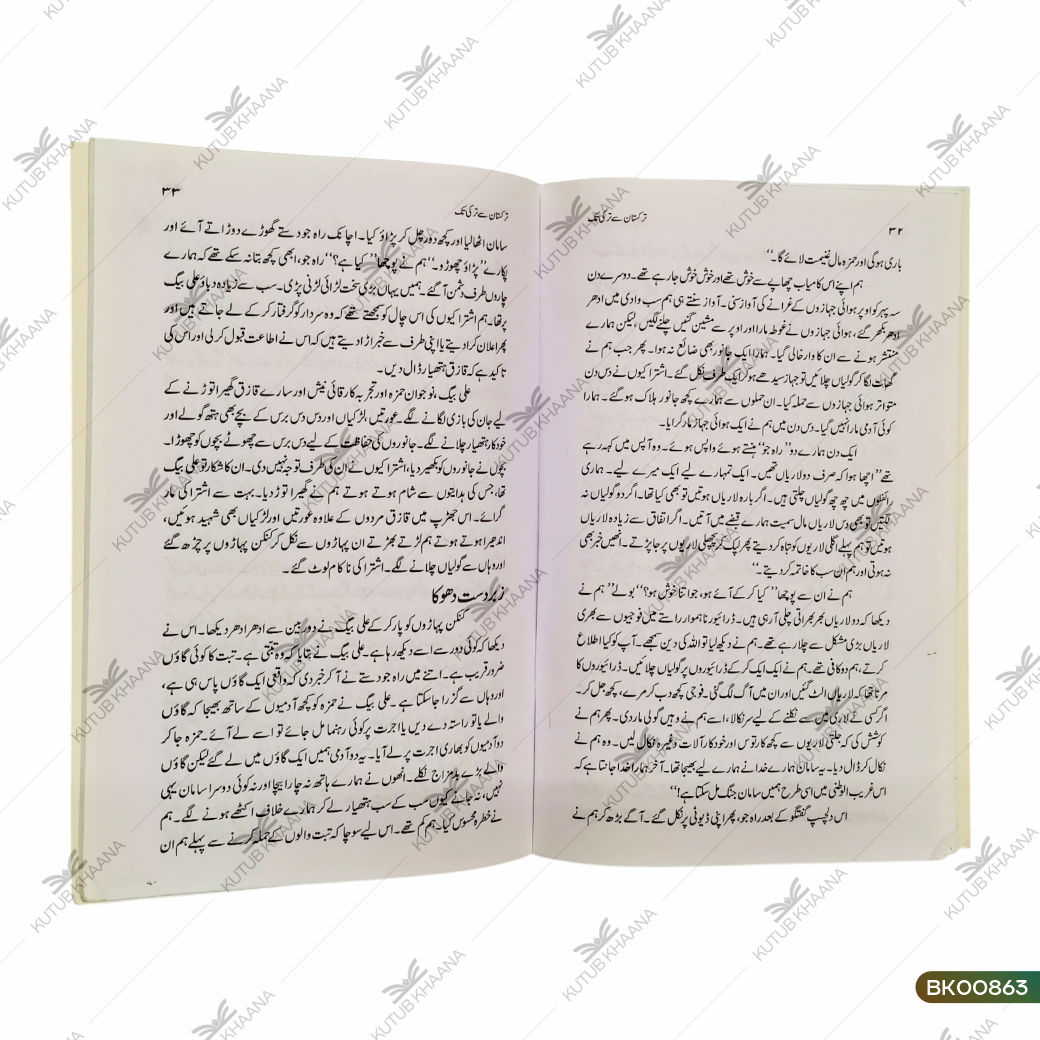 ۳۲
ترکستان سے ترکی تک
باری ہوگی اور حمزہ مال غنیمت لائے گا۔‘‘
ہم اپنے اس کامیاب چھاپے سے خوش تھے اور خوش خوش جا رہے تھے۔ دوسرے دن
سہ پہر کو اوپر ہوائی جہازوں کے غرانے کی آواز سنی۔ آواز سنتے ہی ہم سب وادی میں ادھر
ادھر بکھر گئے، ہوائی جہازوں نے غوطہ مارا اور اوپر سے مشین گنیں چلنے لگیں، لیکن ہمارے
منتشر ہونے سے ان کا وار خالی گیا۔ ہمارا ایک جانور بھی ضائع نہ ہوا۔ پھر جب ہم نے
گھات لگا کر گولیاں چلائیں تو جہاز سیدھے ہو کر ایک طرف نکل گئے۔ اشتراکیوں نے دس دن
متواتر ہوائی جہازوں سے حملہ کیا۔ ان حملوں سے ہمارے کچھ جانور ہلاک ہو گئے۔ ہمارا
کوئی آدمی مارا نہیں گیا۔ دس دن میں ہم نے ایک ہوائی جہاز مار گرایا۔
ایک دن ہمارے دو ’’راہ جو‘‘ ہنستے ہوئے واپس ہوئے۔ وہ آپس میں کہہ رہے
تھے ’’اچھا ہوا کہ صرف دو لاریاں تھیں۔ ایک تمہارے لیے ایک میرے لیے۔ ہماری
رائفلوں میں چھ چھ گولیاں چلتی ہیں۔ اگر بارہ لاریاں ہوتیں تو بھی کیا تھا۔ اگر دو گولیاں نہ
لگتیں تو بھی دس لاریاں مال سمیت ہمارے قبضے میں آتیں۔ اگر اتفاق سے زیادہ لاریاں
ہوتیں تو ہم پہلے اگلی لاریوں کو تباہ کر دیتے پھر لپک کر پچھلی لاریوں پر جا پڑتے۔ انھیں خبر بھی
نہ ہوتی اور ہم ان سب کا خاتمہ کر دیتے۔‘‘
ہم نے ان سے پوچھا ’’کیا کر کے آئے ہو، جو اتنا خوش ہو؟‘‘ بولے ’’ہم نے
دیکھا کہ دو لاریاں بھربھراتی چلی آ رہی ہیں۔ ڈرائیور ناہموار راستے میں فوجیوں سے بھری
لاریاں بڑی مشکل سے چلا رہے تھے۔ ہم نے دیکھ لیا تو اللہ کی دین سمجھے۔ آپ کو کیا اطلاع
کرتے، ہم دو کافی تھے۔ ہم نے ایک ایک کر کے ڈرائیوروں پر گولیاں چلائیں۔ ڈرائیوروں کا
مرنا تھا کہ لاریاں الٹ گئیں اور ان میں آگ لگ گئی۔ فوجی کچھ دب کر مرے، کچھ جل کر۔
اگر کسی نے لاری میں سے نکلنے کے لیے سر نکالا، اسے ہم نے وہیں گولی مار دی۔ پھر ہم نے
کوشش کی کہ جلتی لاریوں سے کچھ کارتوس اور خودکار آلات وغیرہ نکال لیں۔ وہ ہم نے
نکال کر ڈال دیا۔ یہ سامان ہمارے خدا نے ہمارے لیے بھیجا تھا۔ آخر ہمارا خدا جانتا ہے کہ
اس غریب الوطنی میں اسی طرح ہمیں سامان جنگ مل سکتا ہے!‘‘
اس دلچسپ گفتگو کے بعد راہ جو، پھر اپنی ڈیوٹی پر نکل گئے۔ آگے بڑھ کر ہم نے
۳۳
ترکستان سے ترکی تک
سامان اٹھالیا اور کچھ دور چل کر پڑاؤ کیا۔ اچانک راہ جو دستے گھوڑے دوڑاتے آئے اور
پکارے ’’پڑاؤ چھوڑو۔‘‘ ہم نے پوچھا ’’کیا ہے؟‘‘ راہ جو، ابھی کچھ بتا نہ سکے تھے کہ ہمارے
چاروں طرف دشمن آ گئے۔ ہمیں یہاں بڑی سخت لڑائی لڑنی پڑی۔ سب سے زیادہ دباؤ علی بیگ
پر تھا۔ ہم اشتراکیوں کی اس چال کو سمجھتے تھے کہ وہ سردار کو گرفتار کر کے لے جاتے ہیں اور
پھر اعلان کرا دیتے یا اپنی طرف سے خبر اڑا دیتے ہیں کہ اس نے اطاعت قبول کر لی اور اس کی
تاکید ہے کہ قازق ہتھیار ڈال دیں۔
علی بیگ، نوجوان حمزہ اور تجربہ کار قائی نیش اور سارے قازق گھیرا توڑنے کے
لیے جان کی بازی لگانے لگے۔ عورتیں، لڑکیاں اور دس دس برس کے بچے بھی ہتھ گولے اور
خودکار ہتھیار چلانے لگے۔ جانوروں کی حفاظت کے لیے دس برس سے چھوٹے بچوں کو چھوڑا۔
بچوں نے جانوروں کو بکھیر دیا، اشتراکیوں نے ان کی طرف توجہ نہیں دی۔ ان کا شکار تو علی بیگ
تھا، جس کی ہدایتوں سے شام ہوتے ہوتے ہم نے گھیرا توڑ دیا۔ بہت سے اشتراکی مار
گرائے۔ اس جھڑپ میں قازق مردوں کے علاوہ عورتیں اور لڑکیاں بھی شہید ہوئیں،
اندھیرا ہوتے ہوتے ہم لڑتے بھڑتے ان پہاڑوں سے نکل کر کنکن پہاڑوں پر چڑھ گئے
اور وہاں سے گولیاں چلانے لگے۔ اشتراکی ناکام لوٹ گئے۔
زبردست دھوکا
کنکن پہاڑوں کو پار کر کے علی بیگ نے دوربین سے ادھر ادھر دیکھا۔ اس نے
دیکھا کہ کوئی دور سے اسے دیکھ رہا ہے۔ علی بیگ نے بتایا کہ وہ تبتی ہے۔ تبت کا کوئی گاؤں
ضرور قریب ہے۔ اتنے میں راہ جو دستے نے آ کر خبر دی کہ واقعی ایک گاؤں پاس ہی ہے،
اور وہاں سے گزرا جا سکتا ہے۔ علی بیگ نے حمزہ کو کچھ آدمیوں کے ساتھ بھیجا کہ گاؤں
والے یا تو راستہ دے دیں یا اجرت پر کوئی رہنما مل جائے تو اسے لے آئے۔ حمزہ جا کر
دو آدمیوں کو بھاری اجرت پر لے آیا۔ یہ دو آدمی ہمیں ایک گاؤں میں لے گئے لیکن گاؤں
والے بڑے بدمزاج نکلے۔ انھوں نے ہمارے ہاتھ نہ چارا بیچا اور نہ کوئی دوسرا سامان یہی
نہیں، نہ جانے کیوں سب کے سب ہتھیار لے کر ہمارے خلاف اکٹھے ہونے لگے۔ ہم
نے خطرہ محسوس کیا۔ ہم کم تھے۔ اس لیے سوچا کہ تبت والوں کے حملہ کرنے سے پہلے ہم ان
KUTUB KHAANA
BK00863